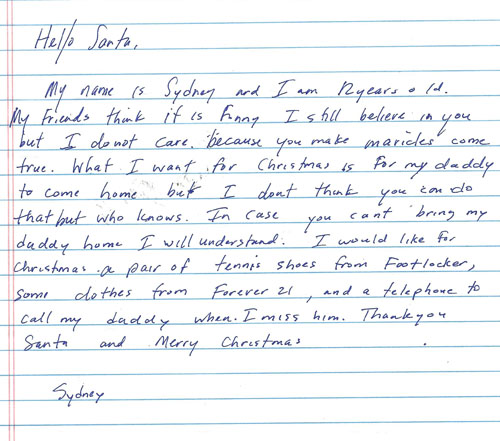 Hello Santa,
My name is Sydney and I am 12 years old.
My friends think it is funny I still believe in you
but I do not care. because you make maricles come
true. What I want for Christmas is for my daddy
to come home but I dont think you can do
that but who knows. In case you cant bring my
daddy home I will understand. I would like for
Christmas a pair of tennis shoes from Footlocker,
some clothes from Forever 21, and a telephone to
call my daddy when I miss him. Thankyou
Santa and Merry Christmas.
Sydney